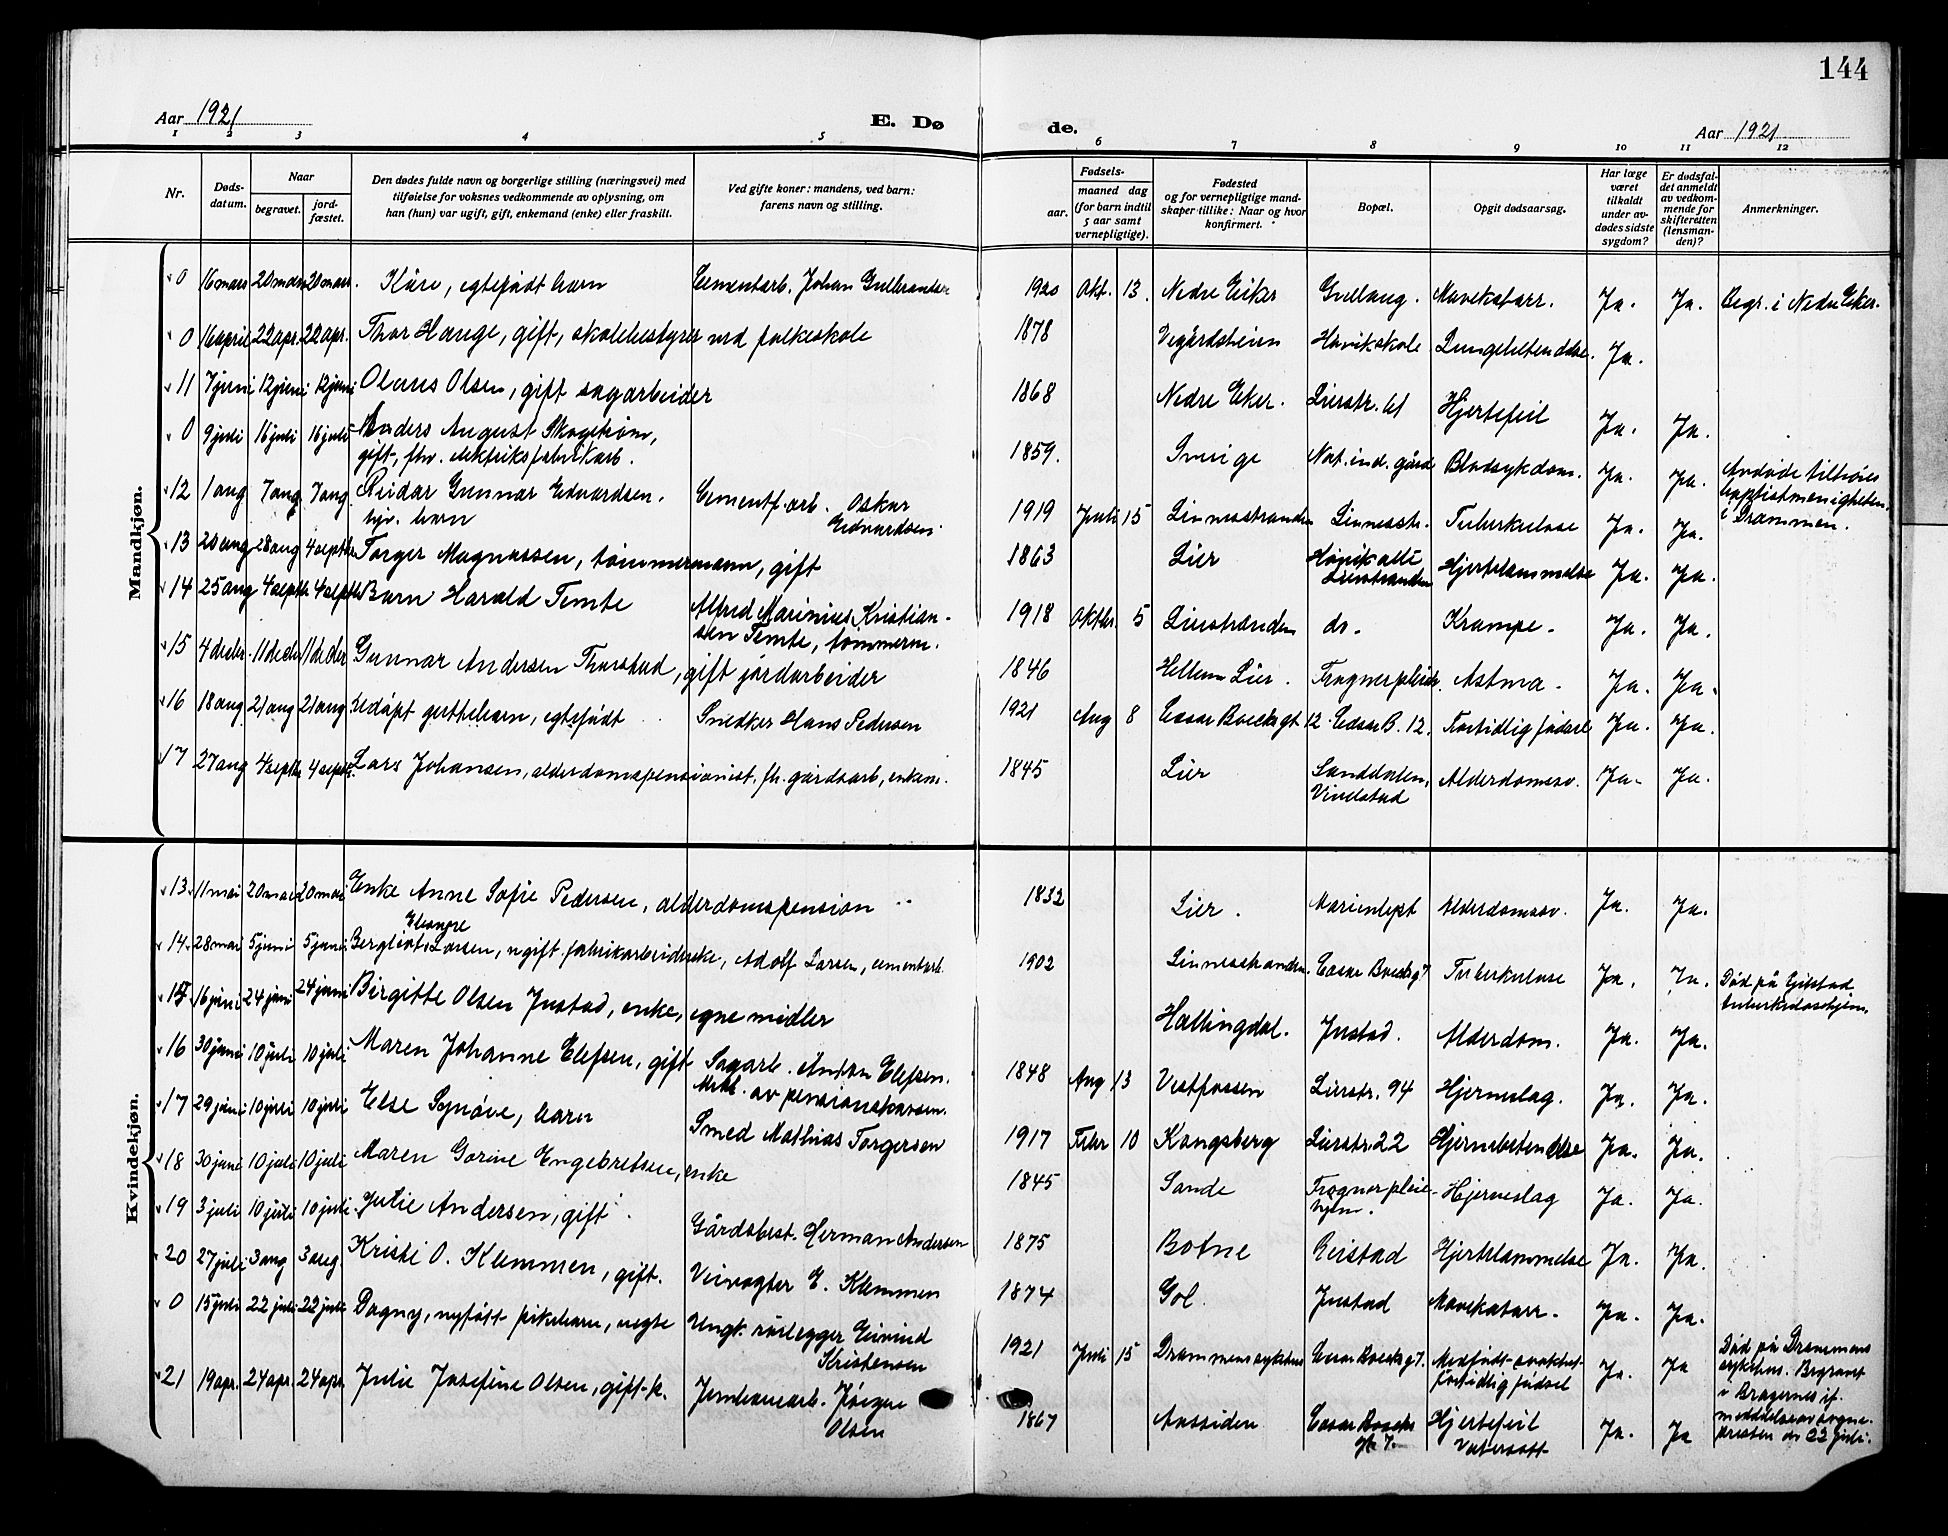 144
Aar 1921
E. Dø
de.
Aar 1921
1 2 3 4 5 6 7 8 9 10 11 12
Nr.
Døds-
datum.
Naar
begravet.
jord-
fæstet.
Den dødes fulde navn og borgerlige stilling (næringsvei) med
tilføielse for voksnes vedkommende av oplysning, om
han (hun) var ugift, gift, enkemand (enke) eller fraskilt.
Ved gifte koner: mandens, ved barn:
farens navn og stilling.
Fødsels-
aar.
maaned dag
(for barn indtil
5 aar samt
vernepligtige).
Fødested
og for vernepligtige mand-
skaper tillike: Naar og hvor
konfirmert.
Bopæl.
Opgit dødsaarsag.
Har læge
været
tilkaldt
under av-
dødes sidste
sygdom?
Er dødsfal-
det anmeldt
av vedkom-
mende for
skifteretten
(lensman-
den)?
Anmerkninger.
Mandkjøn.
0 16 mars 20 mars 20 mars Kåre, egtefødt barn Cementarb. Johan Gulbrandsen 1920 Okt. 13 Nedre Eiker Gullaug. Mavekatarr. Ja. Ja. Begr. i Nedre Eiker.
0 16 april 22 apr. 22 apr. Thor Hauge, gift, skolebestyrer ved folkeskole 1878 Vegårdsheien Høvik skole Lungebetendelse. Ja.
11 7 juni 12 juni 12 juni Olaus Olsen, gift sagarbeider 1868 Nedre Eker. Lierstr. 61 Hjertefeil Ja. Ja.
0 9 juli 16 juli 16 juli Anders August Skogstrøm,
gift, fhv. elektriksfabrikarb. 1859. Sverige Not. ind. gård Blodsykdom. Ja. Ja. Avdøde tilhøres
baptistmenigheten
i Drammen.
12 1 aug 7 aug 7 aug Reidar Gunnar Edvardsen.
hjv. barn Cementf. arb. Oskar
Edvardsen. 1919 Juli 15 Linnesstranden Linnesstr. Tuberkulose Ja. Ja.
13 20 aug 28 aug 4 septbr Torger Magnussen, tømmermann, gift 1863 Lier Høvik alle
Lierstranden Hjertelammelse Ja. Ja.
14 25 aug 4 septbr 4 septbr Barn Harald Temte Alfred Marinius Kristian-
sen Temte, tømmerm. 1918 Oktbr. 5 Lierstranden do. Krampe. Ja. Ja.
15 4 desbr. 11 decbr 11 decbr Gunnar Andersen Thorstad, gift jordarbeider 1846 Hellum Lier. Frognerpleieh. Astma. Ja. Ja.
16 18 aug. 21 aug 21 aug Uedøpt guttebarn, egtefødt Snedker Hans Pedersen 1921 Aug 8 Cesar Boecksgt 12 Cesar B. 12. Fortidlig fødsel Ja. Ja.
17 27 aug 4 septbr 4 septbr. Lars Johansen, alderdomspensionist, fh. gårdsarb, enkem. 1845 Lier Sanddalen,
Vivelstad Alderdomssv. Ja. Ja.
Kvindekjøn.
13 11 mai 20 mai 20 mai Enke Anne Sofie Pedersen, alderdomspension 1832 Lier. Marienlyst Alderdomssv. Ja. Ja.
14 28 mai 5 juni 5 juni Bergliot Eleonore Larsen, ugift fabrikarbeiderske, Adolf Larsen, cementarb. 1902 Linnesstranden. Cesar Boecksg 7 Tuberkulose Ja. Ja. Død på Egilstad
tuberkuloshjem.
15 16 juni 24 juni 24 juni Birgitte Olsen Justad, enke, egne midler Hallingdal. Justad. Alderdom. Ja. Ja.
16 30 juni 10 juli 10 juli Maren Johanne Elefsen, gift Sagarb. Anton Elefsen.
Mekl. av pensionskassen. 1848 Aug 13 Vestfossen Lierstr. 94 Hjerneslag. Ja. Ja.
17 29 juni 10 juli 10 juli Else Synøve, barn Smed Mathias Torgersen 1917 Febr 10 Kongsberg Lierstr. 22 Hjernebetendelse Ja. Ja.
18 30 juni 10 juli 10 juli Maren Gorine Engebretsen, enke 1845 Sande Frogner pleie-
hjem. Hjerneslag Ja. Ja.
19 3 juli 10 juli 10 juli. Julie Andersen, gift. Gårdsbest. Herman Andersen 1875 Botne Reistad Hjertelammelse Ja. Ja.
20 27 juli 3 aug 3 aug. Kristi O. Klemmen, gift. Veivogter E. Klemmen 1874 Gol. Justad Mavekatarr. Ja. Ja.
0 15 juli 22 juli 22 juli Dagny, nyfødt pikebarn, uegte Ungk. rørlegger Eivind
Kristensen 1921 Juli 15 Drammens sykehus Cesar Boecksg 7. Medfødt svakhet
fortidlig fødsel Ja. Ja Død på Drammens
sykehus. Begravet
i Bragernes if.
meddelse av sogne-
presten do 22 juli.
21 19 apr. 24 apr. 24 apr. Julie Josefine Olsen, gift k. Jernbanearb. Jørgen
Olsen 1867 Aassiden Cesar Boecks
g. 7. Hjertefeil
Vatersott Ja. Ja